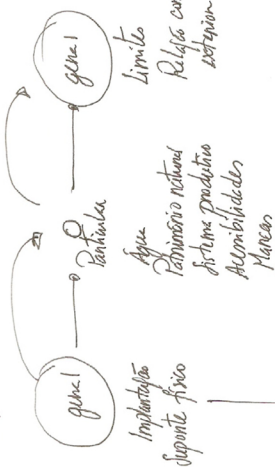 geral
Implantação
Suporte físico
Particular
Água
Património natural
Sistema produtivo
Acessibilidades
Marcas
geral
Limites
Relação com
exterior